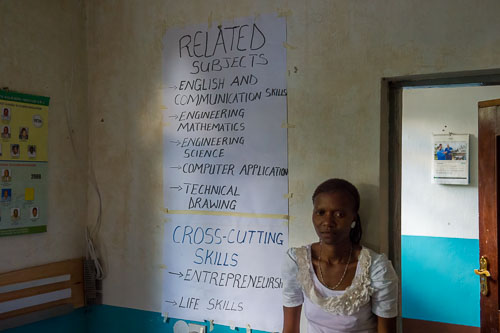 RELATED
SUBJECTS
→ENGLISH AND
COMMUNICATION SKILLS
→ENGINEERING
MATHEMATICS
→ENGINEERING
SCIENCE
→COMPUTER APPLICATION
→TECHNICAL
DRAWING
CROSS-CUTTING
SKILLS
→ENTREPRENEURSHI
→LIFE SKILLS